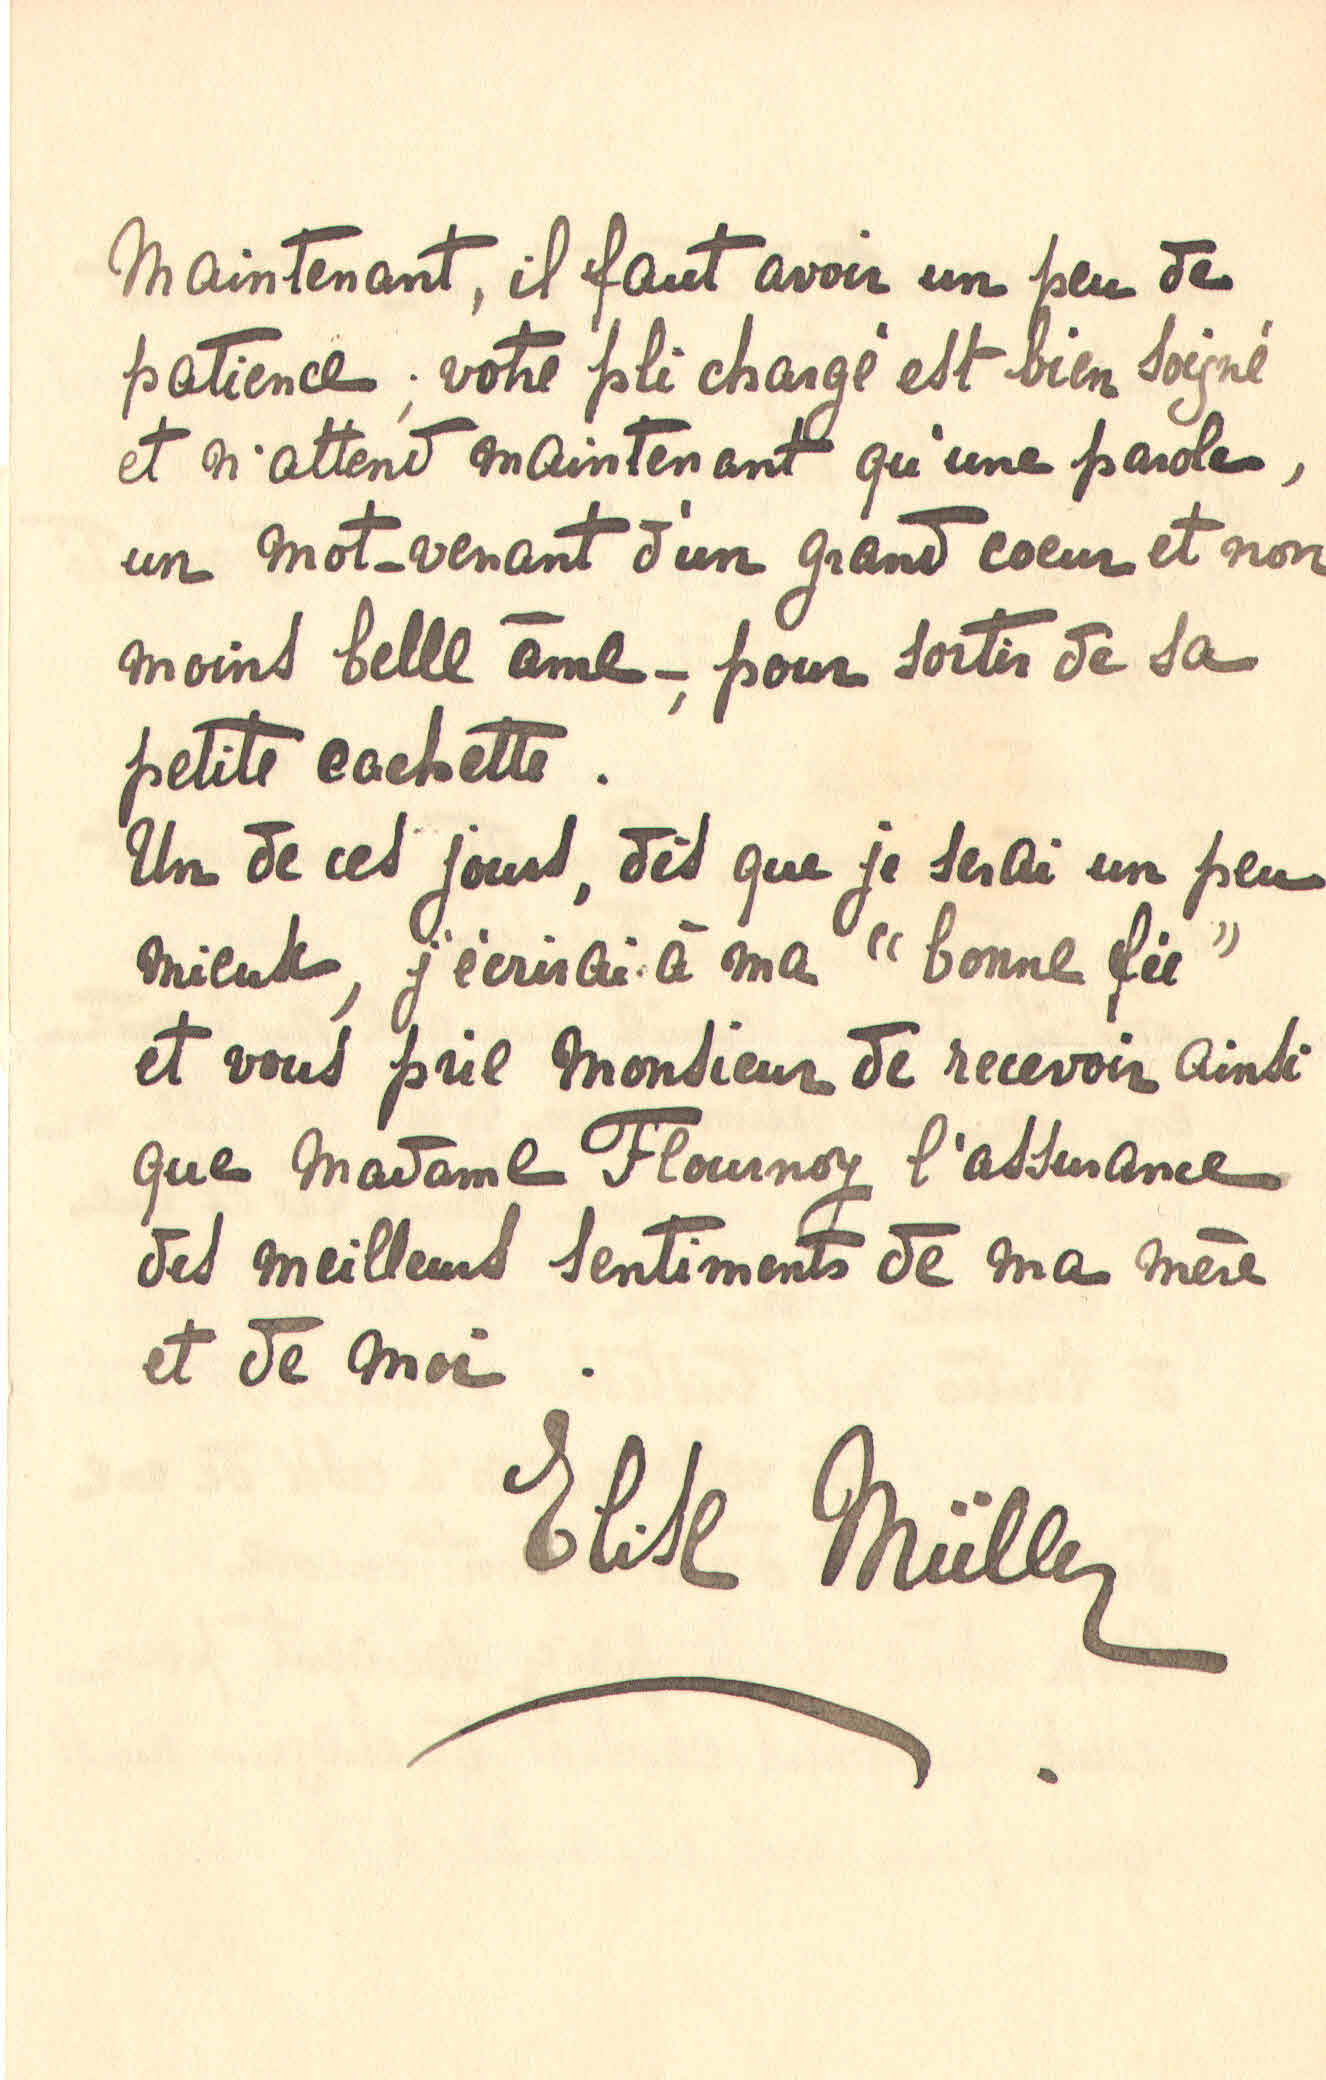 Maintenant, il faut avoir un peu de
patience ; votre pli chargé est bien soigné
et n'attend maintenant qu'une parole,
un mot-venant d'un grand coeur et non
moins belle âme-, pour sortir de sa
petite cachette.
Un de ces jours, dès que je serai un peu
mieux, j'écrirai à ma "bonne fée"
et vous prie Monsieur de recevoir ainsi
que Madame Flournoy l'assurance
des meilleurs sentiments de ma mère
et de moi.
Elise Müller